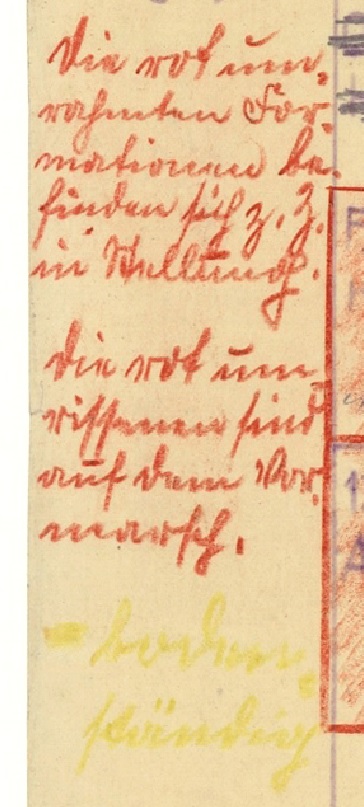 Die rot um-
rahmten For-
mationen be-
finden sich z. Z.
in Stellung.
Die rot um
rissenen sind
auf dem Vor-
marsch.
= boden-
ständig